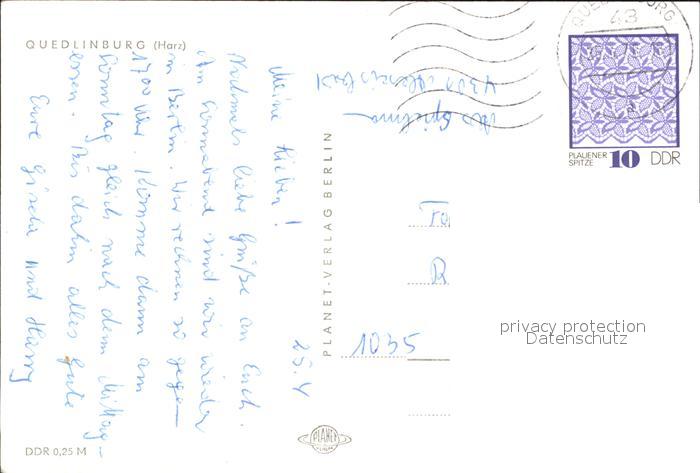 QUEDLINBURG (Harz)
QUEDLINBURG
43
PLAUENER
SPITZE
10 DDR
4301
25.4
Meine Lieben!
Nochmals liebe Grüße an Euch.
Am Sonnabend sind wir wieder
in Berlin. Wir rechnen so gegen
17 00 Uhr. Komme dann am
Sonntag gleich nach dem Mittag-
essen. Bis dahin alles Gute
Eure Gisela und Harry
PLANET-VERLAG BERLIN
1035
privacy protection
Datenschutz
PLANET
DDR 0,25 M